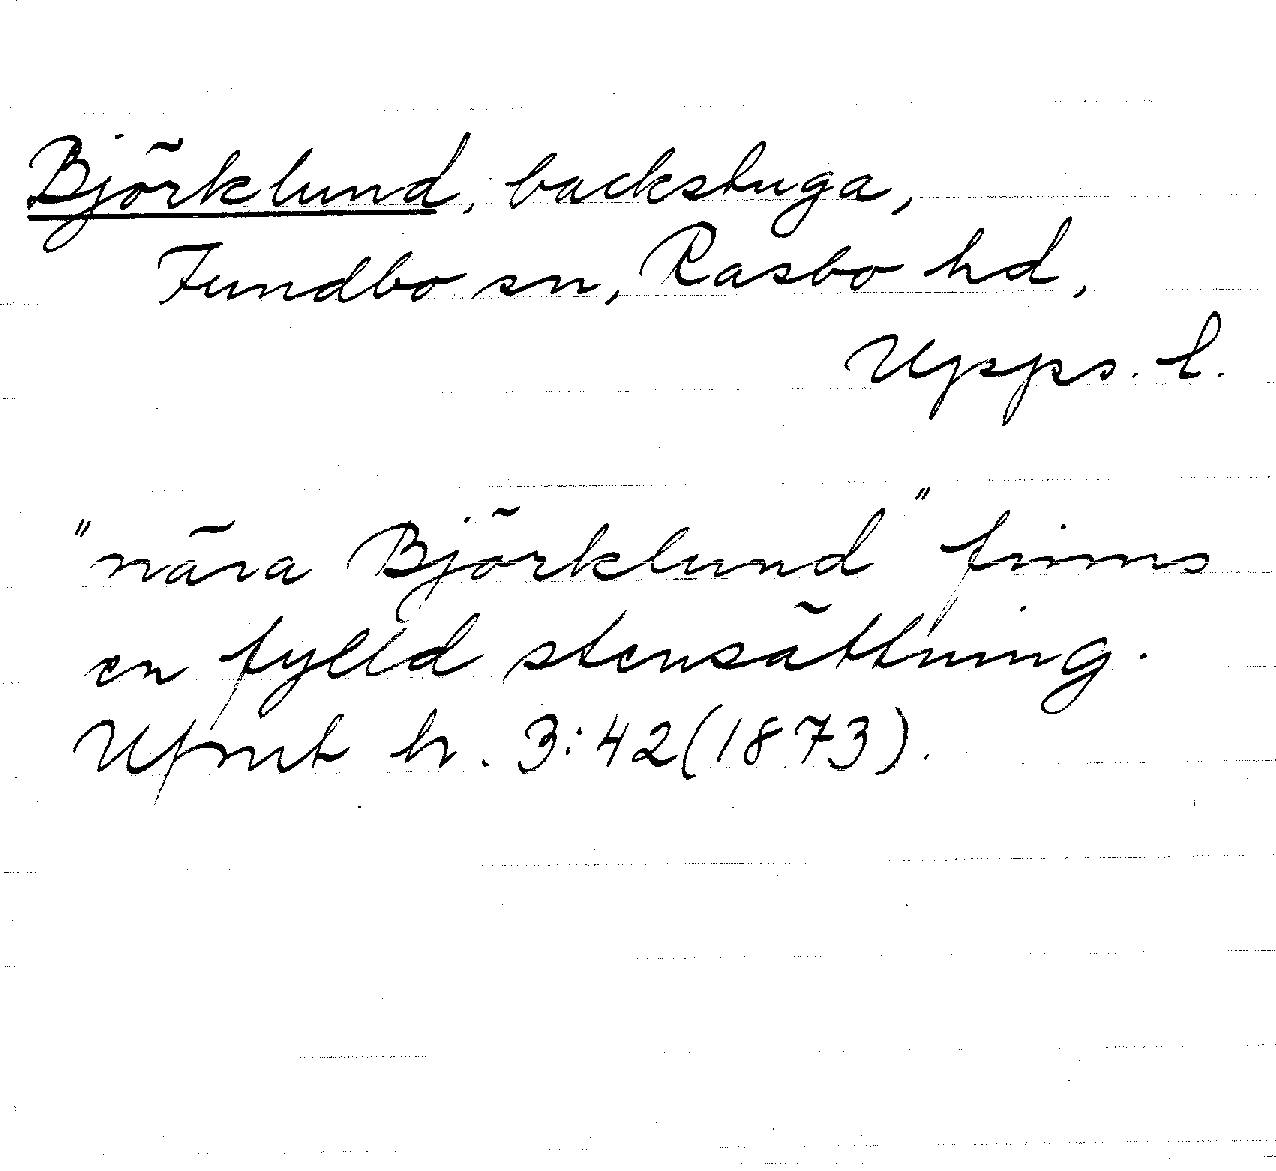 Björklund, backstuga,
Fundbo sn, Rasbo hd,
Upps. l.
"nära Björklund" finns
en fylld stensättning.
Ufmt h. 3:42 (1873).